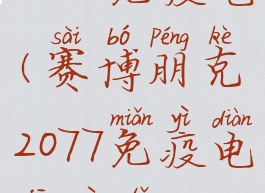 sài bó Péng kè
(赛博朋克
miǎn yì diàn
2077免疫电